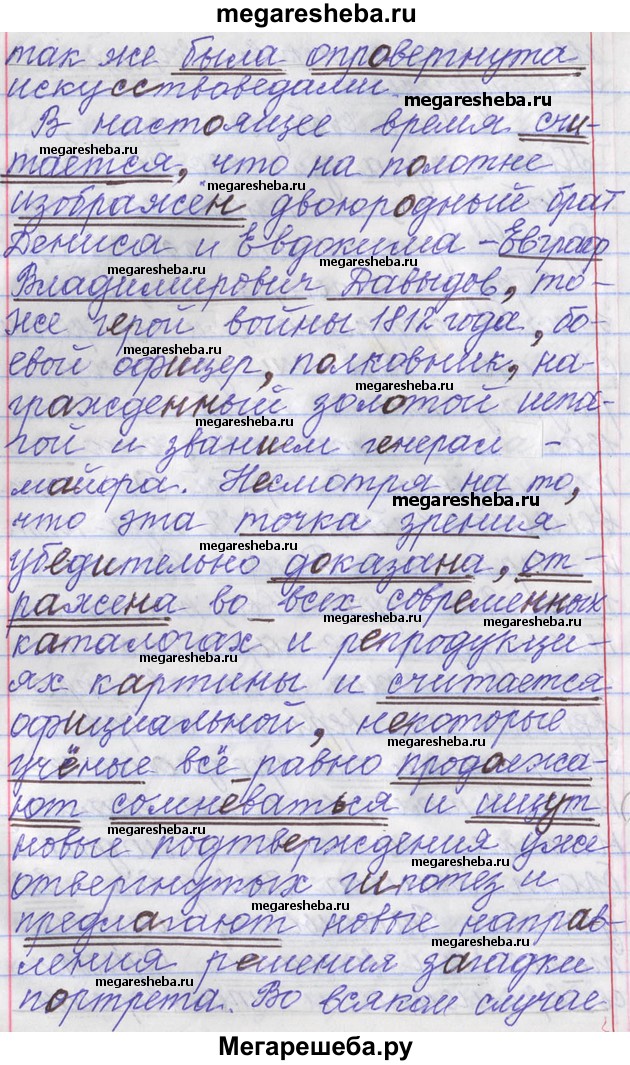 megaresheba.ru
так же была опровергнута
искусствоведами.
megaresheba.ru
В настоящее время счи-
тается, что на полотне
megaresheba.ru
изображён двоюродный брат
Дениса и Евдокима - Евграф
megaresheba.ru
megaresheba.ru
Владимирович Давыдов, то-
же герой войны 1812 года, бо-
megaresheba.ru
евой офицер, полковник, на-
megaresheba.ru
гражденный золотой шпа-
гой и званием генерал -
майора. Несмотря на то,
megaresheba.ru
что эта точка зрения
megaresheba.ru
убедительно доказана, от-
ражена во всех современных
megaresheba.ru
каталогах и репродукци-
megaresheba.ru
ях картины и считается
официальной, некоторые
megaresheba.ru
учёные всё равно продолжа-
ют сомневаться и ищут
megaresheba.ru
новые подтверждения уже
megaresheba.ru
отвергнутых гипотез и
megaresheba.ru
предлагают новые направ-
megaresheba.ru
ления решения загадки
megaresheba.ru
портрета. Во всяком случае
Мегарешеба.ру